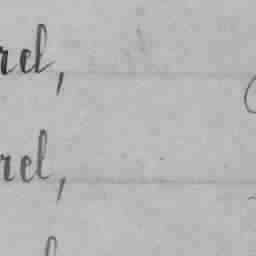 rel,
rel,